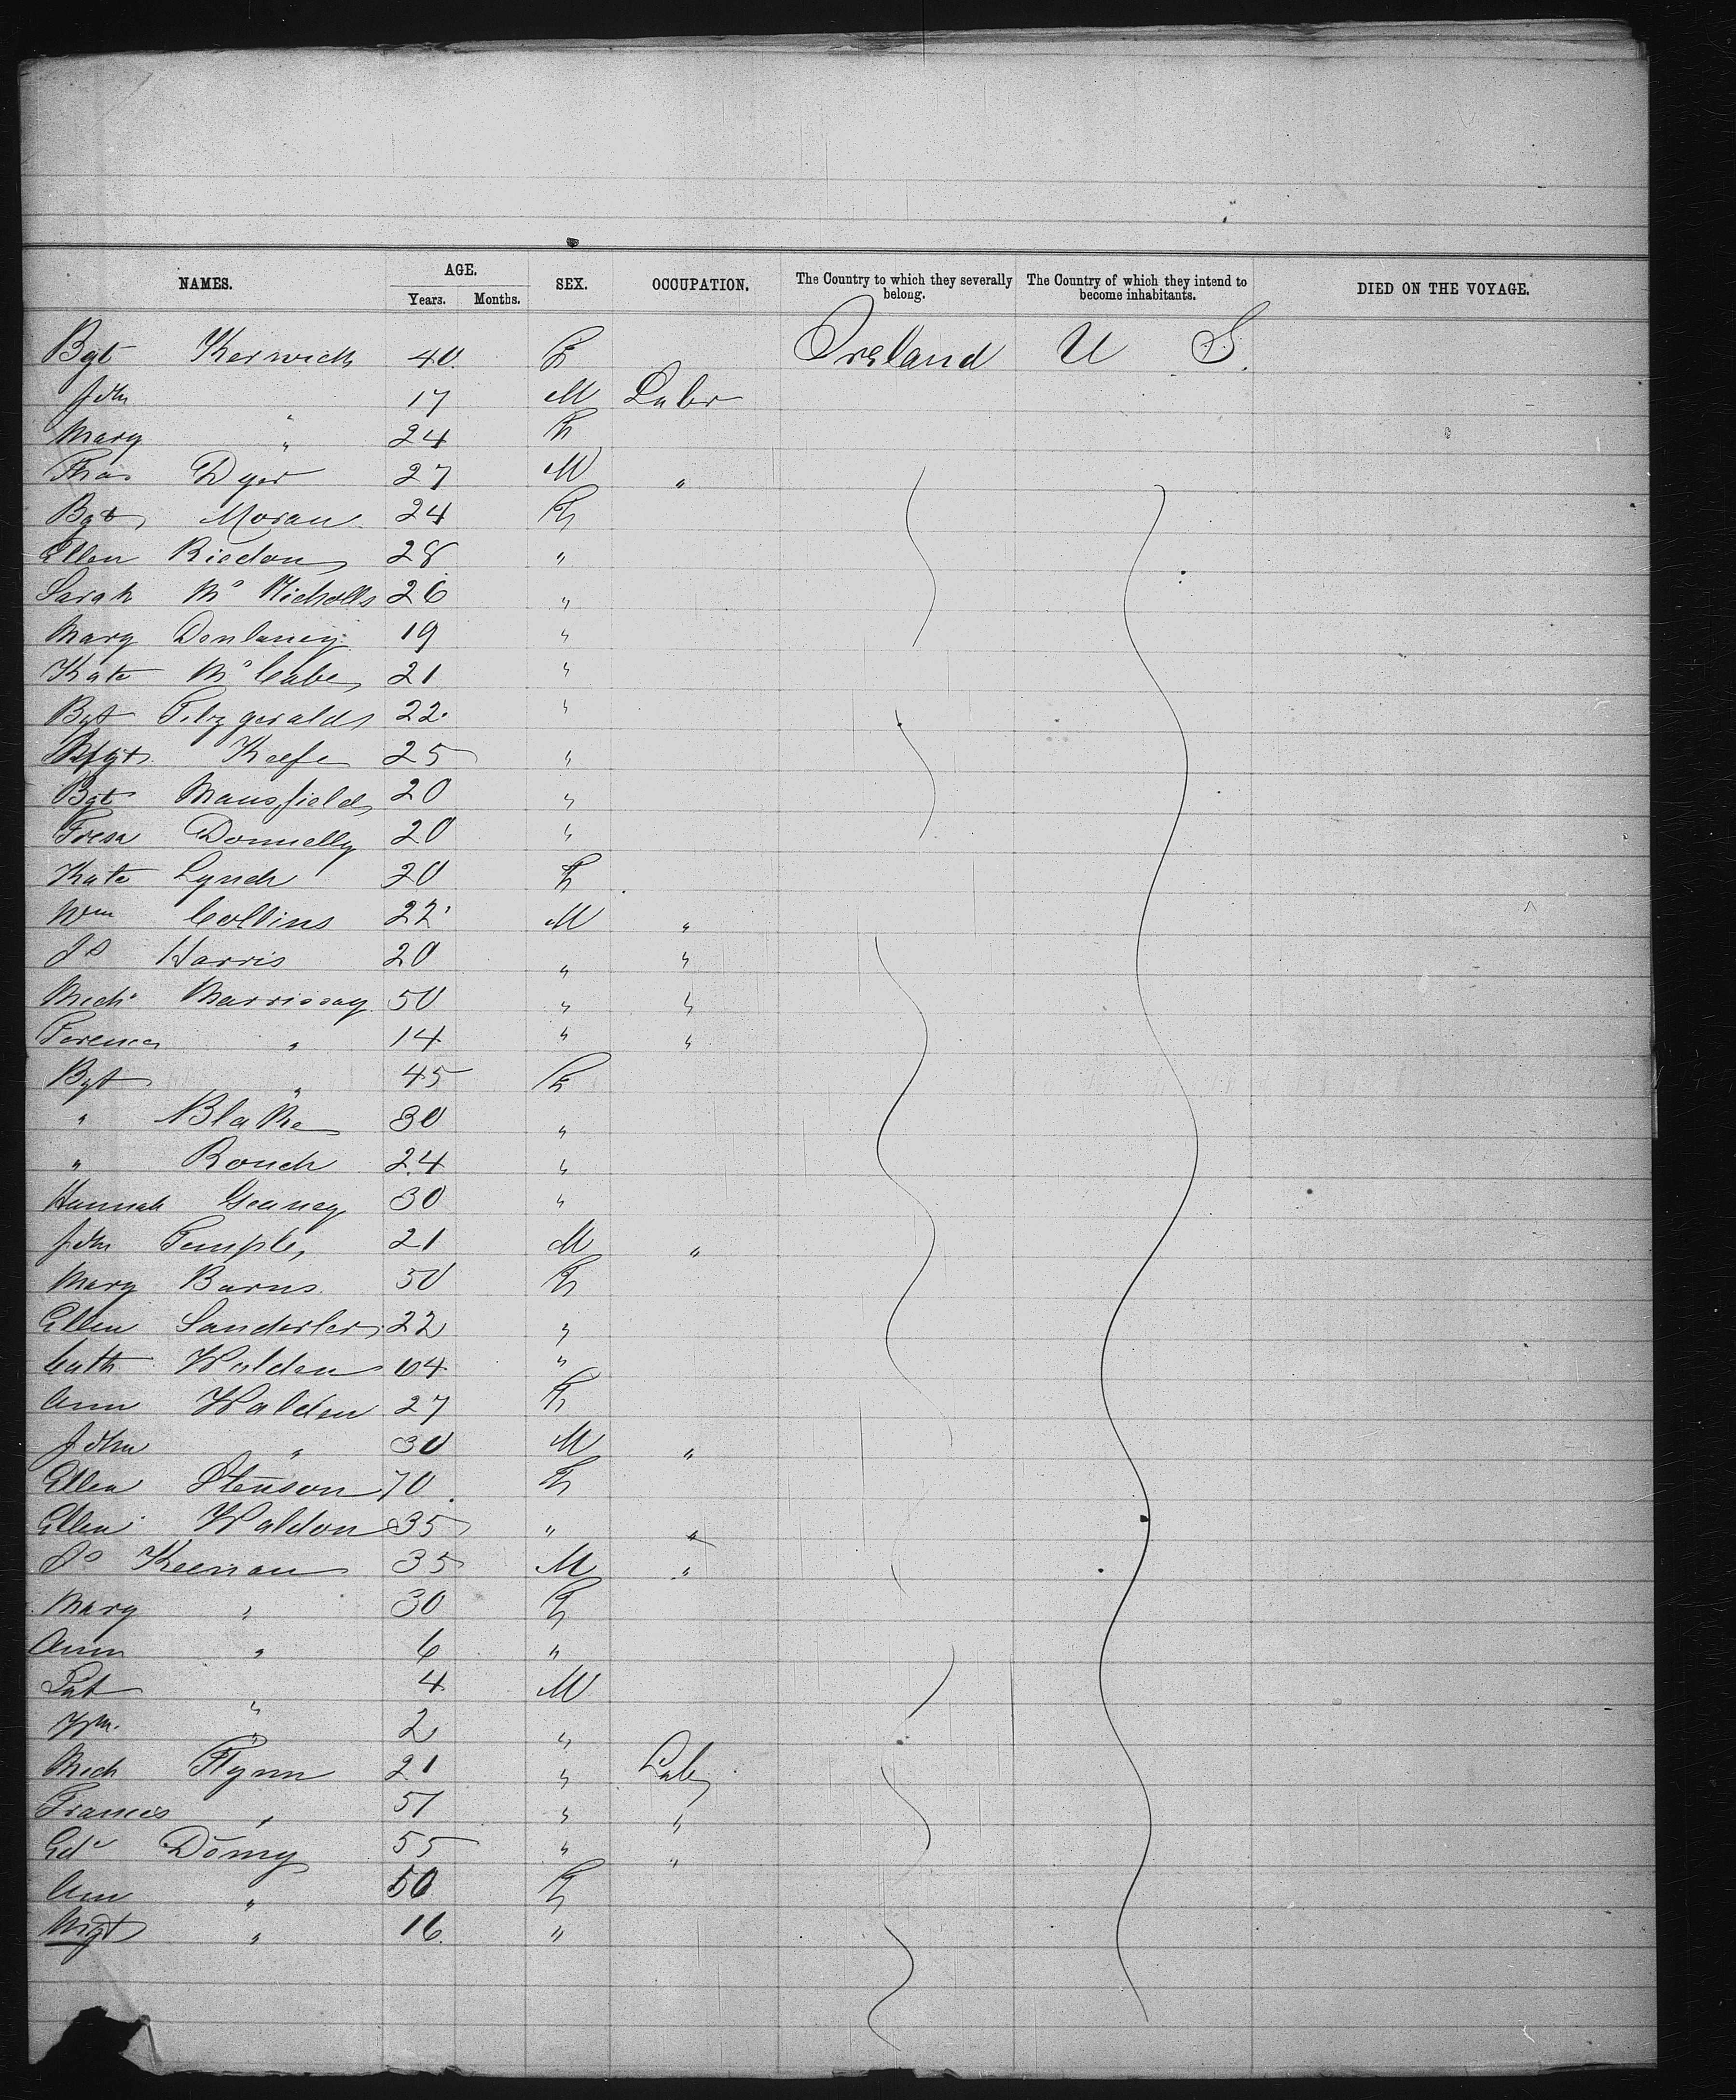 NAMES. AGE. SEX. OCCUPATION. The Country to which they severally belong. The Country of which they intend to become inhabitants. DIED ON THE VOYAGE.
Years. Months.
Bgt Kerwick 40 F Ireland U S.
John 17 M Labr
Mary " 24 F
Thos Dyer 27 M "
Bgt Moran 24 F
Ellen Riedon 28 "
Sarah Mc Nicholls 26 "
Mary Donlaney 19 "
Kate Mc Cabe 21 "
Bgt Fitzgerald 22 "
Mgt Keefe 25 "
Bgt Mansfield 20 "
Tresa Donnelly 20 "
Kate Lynch 20 F
Wm Collins 22 M "
Js Harris 20 " "
Mich Marrissay 50 " "
Terence " 14 " "
Bgt " 45 F
" Blake 30 "
" Rouch 24 "
Hannah Geaney 30 "
John Temple 21 M "
Mary Barns 50 F
Ellen 22 "
Cath Walden "
Ann Walden 27 F
John " 30 M "
Ellen Stenson 70 F
Ellen Waldon 35 " "
Js Keenan 35 M "
Mary " 30 F
Ann " 6 "
Pat " 4 M
Wm " 2 "
Mich Flynn 21 " Labr
Francis " " "
Ed 55 " "
Ann " 50 F
Mgt " 16 "